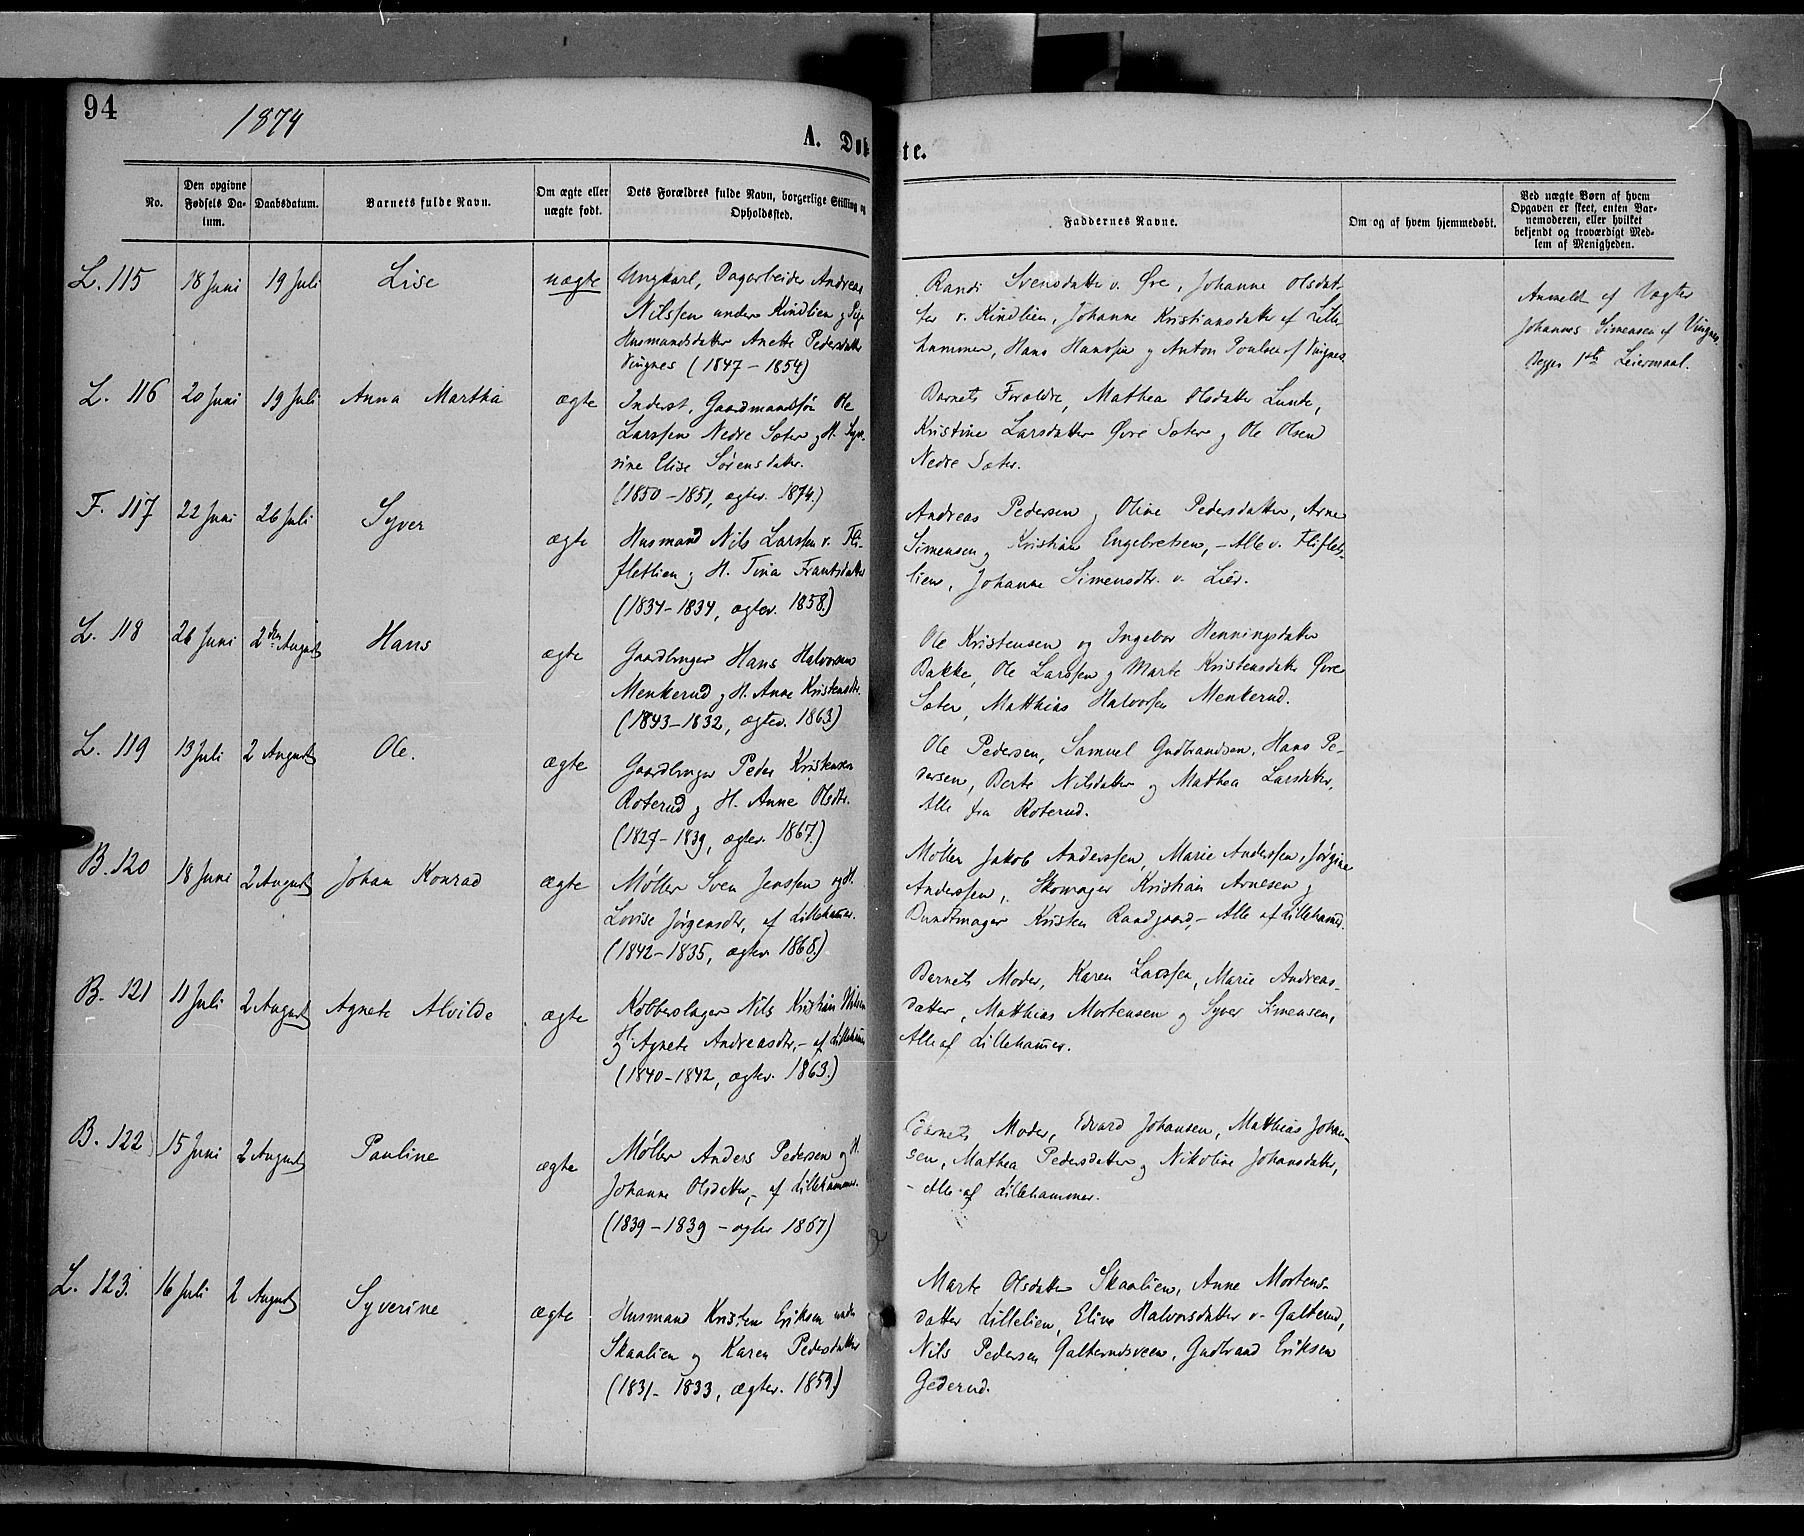 94
1874
A. Døb
te.
No.
Den opgivne Fødsels Datum.
Daabsdatum.
Barnets fulde Navn.
Om ægte eller uægte født.
Dets Forældres fulde Navn, borgerlige Stilling og Opholdssted.
Faddernes Navne.
Om og af hvem hjemmedøbt.
Ved uægte Børn af hvem Opgaven er skeet, enten Barnemoderen, eller hvilket bekjendt og troværdigt Medlem af Menigheden.
L. 115 18 Juni 19 Juli Lise uægte
Ungkarl, Dagarbeider Andreas
Nilssen under Kindlien og Pige
Husmandsdatter Anette Pedersdatter
Vingnes (1847 - 1854)
Randi Svensdatter v. Øve, Johanne Olsdat-
ter v. Kindlien, Johanne Kristiansdatter af Lille-
hammer, Hans Hanssen og Anton Poulsen af Vingnes
Anmeldt af Vægter
Johannes Simensen af Vingnes.
Begges 1ste Leiermaal.
L. 116 20 Juni 19 Juli Anna Martha ægte
Inderst, Gaardmandssøn Ole
Larssen Nedre Sæter og H. Syve-
rine Elise Sørensdatter.
(1850 - 1851, ægtev. 1874.)
Barnets Forældre, Mathea Olsdatter Lunde,
Kristine Larsdatter Øvre Sæter og Ole Olsen
Nedre Sæter.
F. 117 22 Juni 26 Juli Syver ægte
Husmand Nils Larssen v. Fli-
fletlien og H. Tina Frantsdatter
(1834 - 1834, ægtev. 1858.)
Andreas Pedersen og Oline Pedersdatter, Arne
Simensen og Kristian Engebretsen, - Alle v. Fliflet-
lien, Johanne Simensdtr. v. Lier.
L. 118 26 Juni 2den August Hans ægte
Gaardbruger Hans Halvorsen
Menkerud og H. Anne Kristensdtr.
(1843 - 1832, ægtev. 1863)
Ole Kristensen og Ingebor Henningsdatter
Bakke, Ole Larssen og Marte Kristensdatter Øvre
Sæter, Matthias Halvorsen Menkerud.
L. 119 13 Juli 2 August Ole. ægte
Gaardbruger Peder Kristensen
Roterud og H. Anne Olsdtr.
(1827 - 1839, ægtev. 1867.)
Ole Pedersen, Samuel Gudbrandsen, Hans Pe-
dersen, Berte Nilsdatter og Mathea Larsdatter,
Alle fra Roterud.
B. 120 18 Juni 2 August Johan Konrad ægte
Møller Sven Jenssen og H.
Lovise Jørgensdtr, af Lillehamer.
(1842 - 1835, ægtev. 1868.)
Møller Jakob Anderssen, Marie Anderssen, Jørgine
Anderssen, Skomager Kristian Arnesen og
Bundtmager Kristen Raadgaard, - Alle af Lillehamer.
B. 121 11 Juli 2 August Agnete Alvilde ægte
Kobberslager Nils Kristian Nilsen
og H. Agnete Andreasdtr, - af Lillehamer
(1840 - 1842, ægtev. 1863.)
Barnets Moder, Karen Larssen, Marie Andreas-
datter, Matthias Mortensen og Syver Simensen,
Alle af Lillehamer.
B. 122 15 Juni 2 August Pauline ægte
Møller Anders Pedersen og H.
Johanne Olsdatter, - af Lillehammer.
(1839 - 1839 - ægtev 1867)
Barnets Moder, Edvard Johansen, Matthias Johan-
sen, Mathea Pedersdatter og Nikoline Johansdatter,
- Alle af Lillehammer.
L. 123. 16 Juli 2 August Syverine ægte
Husmand Kristen Eriksen under
Skaalien og Karen Pedersdatter
(1831 - 1833, ægtev. 1859.)
Marte Olsdatter Skaalien, Anne Mortens-
datter Lillelien, Eline Halvorsdatter v. Galterud,
Nils Pedersen Galterudsveen, Gudbrand Eriksen
Gederud.